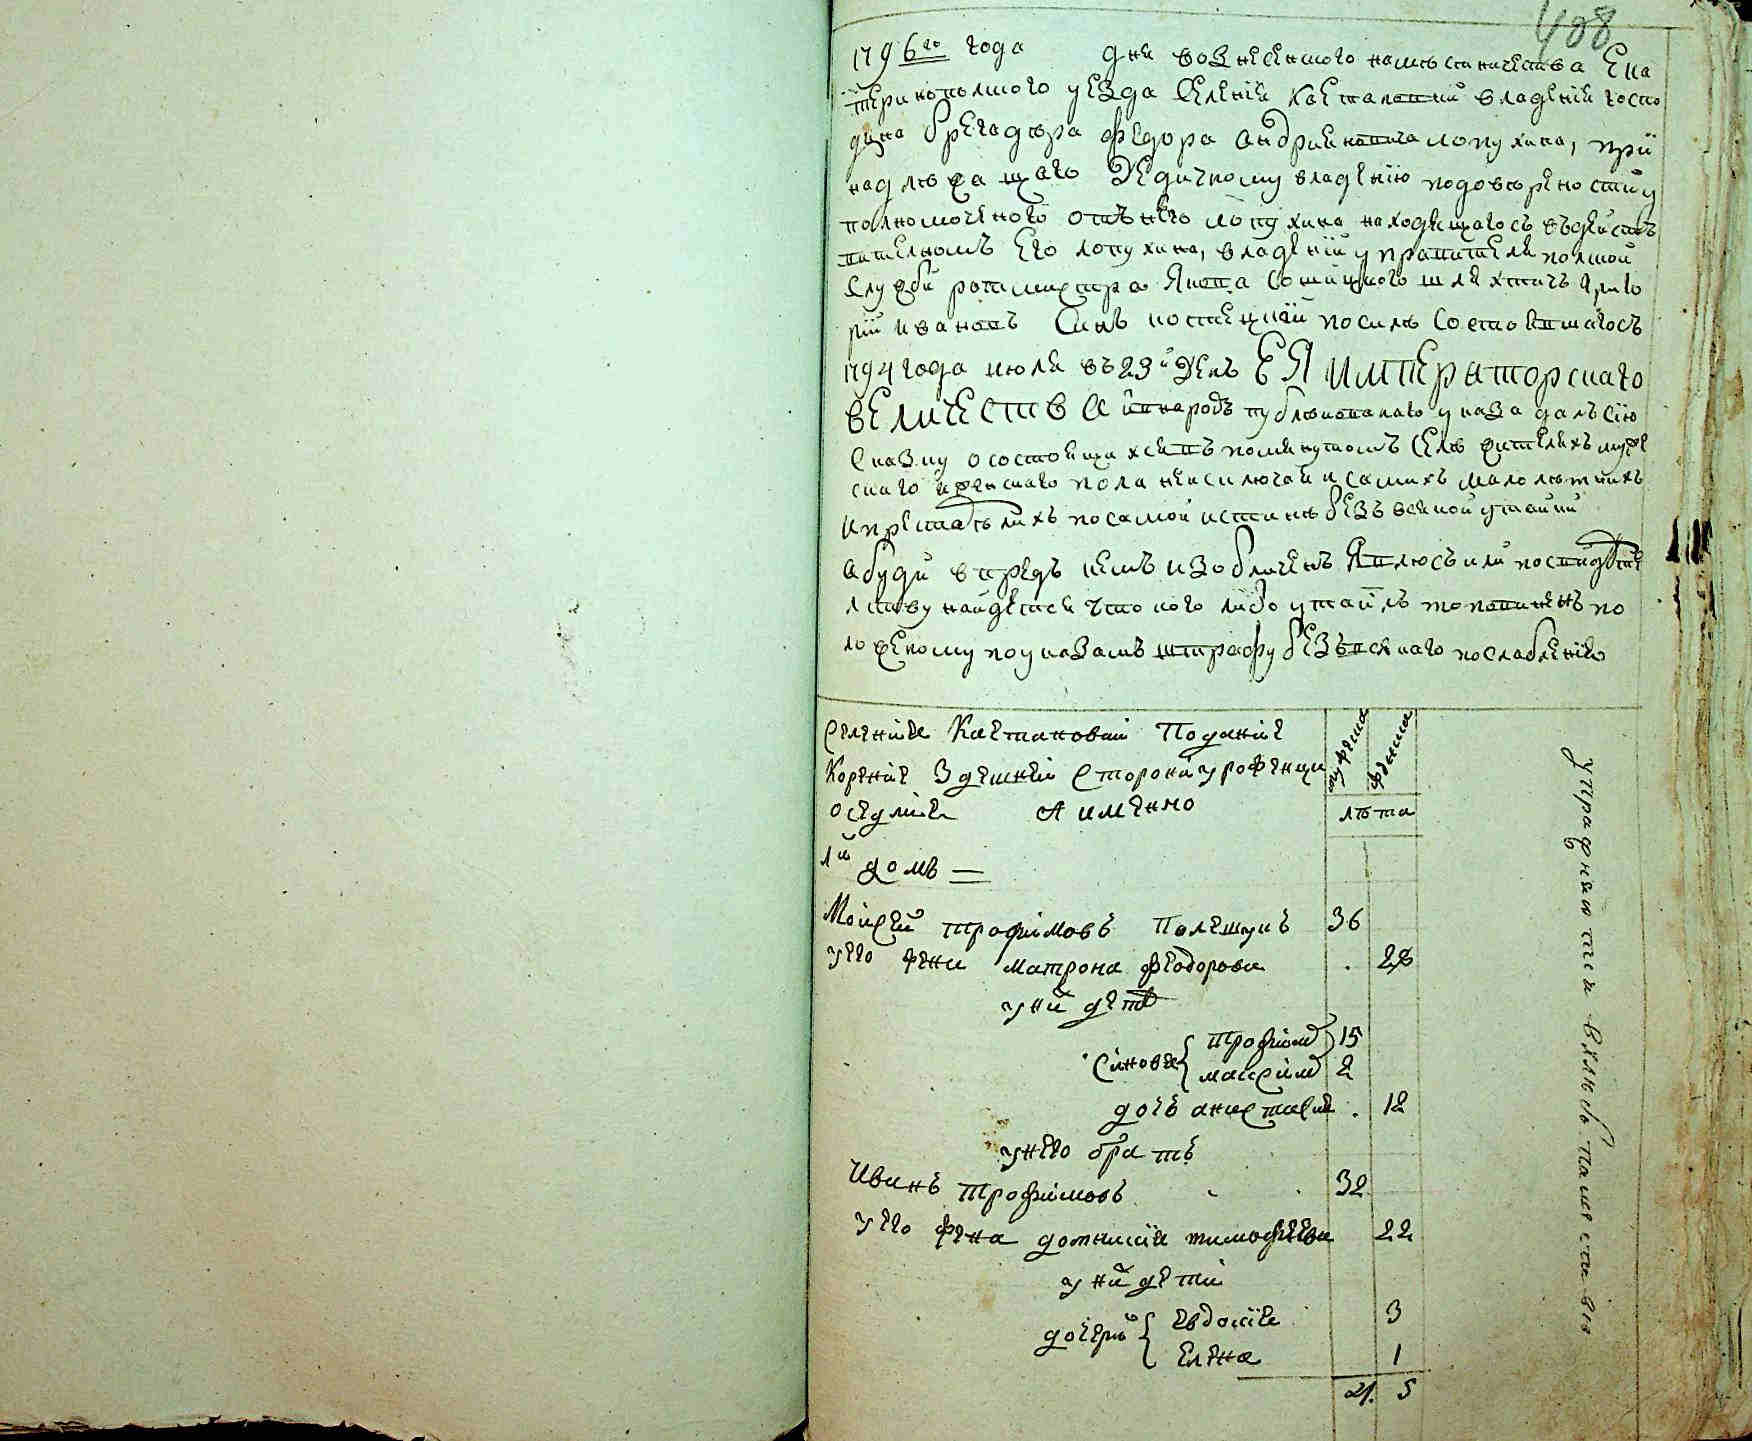 408
1796го года дня вознесенского наместничества Ека
теринопольского уезда Селения Каетановки владения госпо
дина бригадира Федора андриановича лопухина, при
надлежащаго Дедичному владению по доверености у
полномоченного отъ него лопухина находящагось въ действ
вителномъ его лопухина, владении управителя полской
службы ротмистра Якова шляхтичъ
Ивановъ Синъ по силе Состоявшагось
1794 года июля въ 23й День ЕЯ ИМПЕРАТОРСКАГО
ВЕЛИЧЕСТВА въ народъ публикованаго указа далъ сию
Сказку о состоящихъ въ помянутомъ Селе жителяхъ муже
скаго и женскаго пола не исключая и самихъ малолетнихъ
и престарелихъ по самой истине безъ всякой утайки
а буди впредь кемъ изобличенъ явлюсь или по свидетел
лству найдется что кого либо утаилъ то повиненъ по
ложеному по указамъ штрафу безъ всякаго послабления
Селение Каетановки Подание
Корение Здешней Сторони урожении
оседлие А имянно
мужеска
женска
лета
1й домъ
Мойсей трофимовъ Полещукъ 36
у его жена матрона феодорова . 28
у ней дети
Синовя { трофимъ 15
максимъ 2
дочь анастасия . 12
у него братъ
Иванъ трофимовъ 32
у его жена домникия тимофеева 22
у ней дети
дочери { евдокия 3
елена 1
4. 5